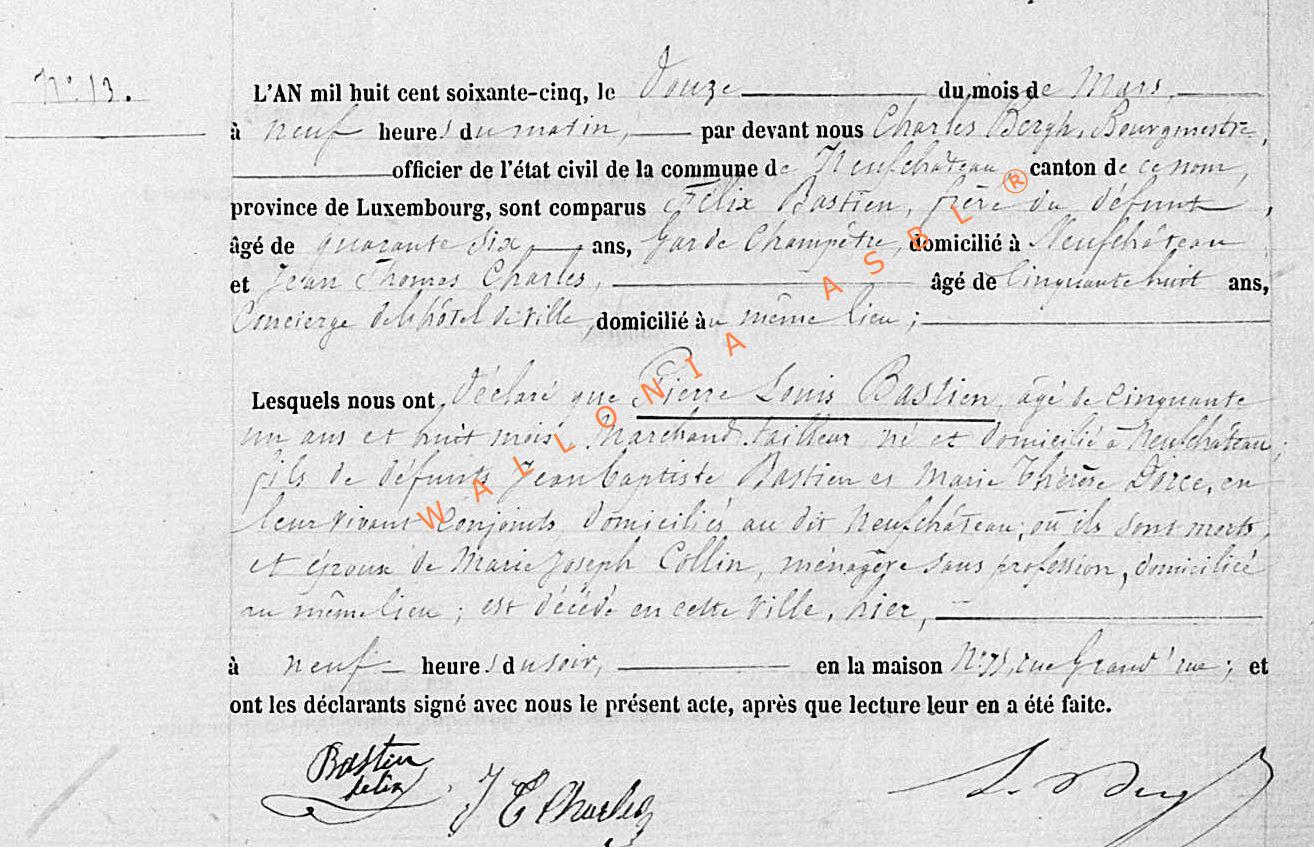 N° 13.
L'AN mil huit cent soixante-cinq, le Douze du mois de Mars,
à neuf heures du matin, par devant nous Charles Bergh, Bourgmestre,
officier de l'état civil de la commune de Neufchâteau, canton de ce nom,
province de Luxembourg, sont comparus Félix Bastien, frère du défunt,
âgé de quarante six ans, Garde Champêtre, domicilié à Neufchâteau
et Jean Thomas Charles, âgé de Cinquante huit ans,
Concierge de l'hôtel de ville, domicilié au même lieu ;
Lesquels nous ont Déclaré que Pierre Louis Bastien, âgé de Cinquante
un ans et huit mois, Marchand tailleur né et domicilié à Neufchâteau,
fils de défunts Jean Baptiste Bastien et Marie Thérèse, en
leur vivant Conjoints, domiciliés au dit Neufchâteau, où ils sont morts,
et époux de Marie Joseph Collin, ménagère sans profession, domiciliée
au même lieu ; est décédé en cette ville, hier,
à neuf heures du soir, en la maison N° rue Grand'rue ; et
ont les déclarants signé avec nous le présent acte, après que lecture leur en a été faite.
Bastien
felix
J T Charles
WALLONIA ASBL ®